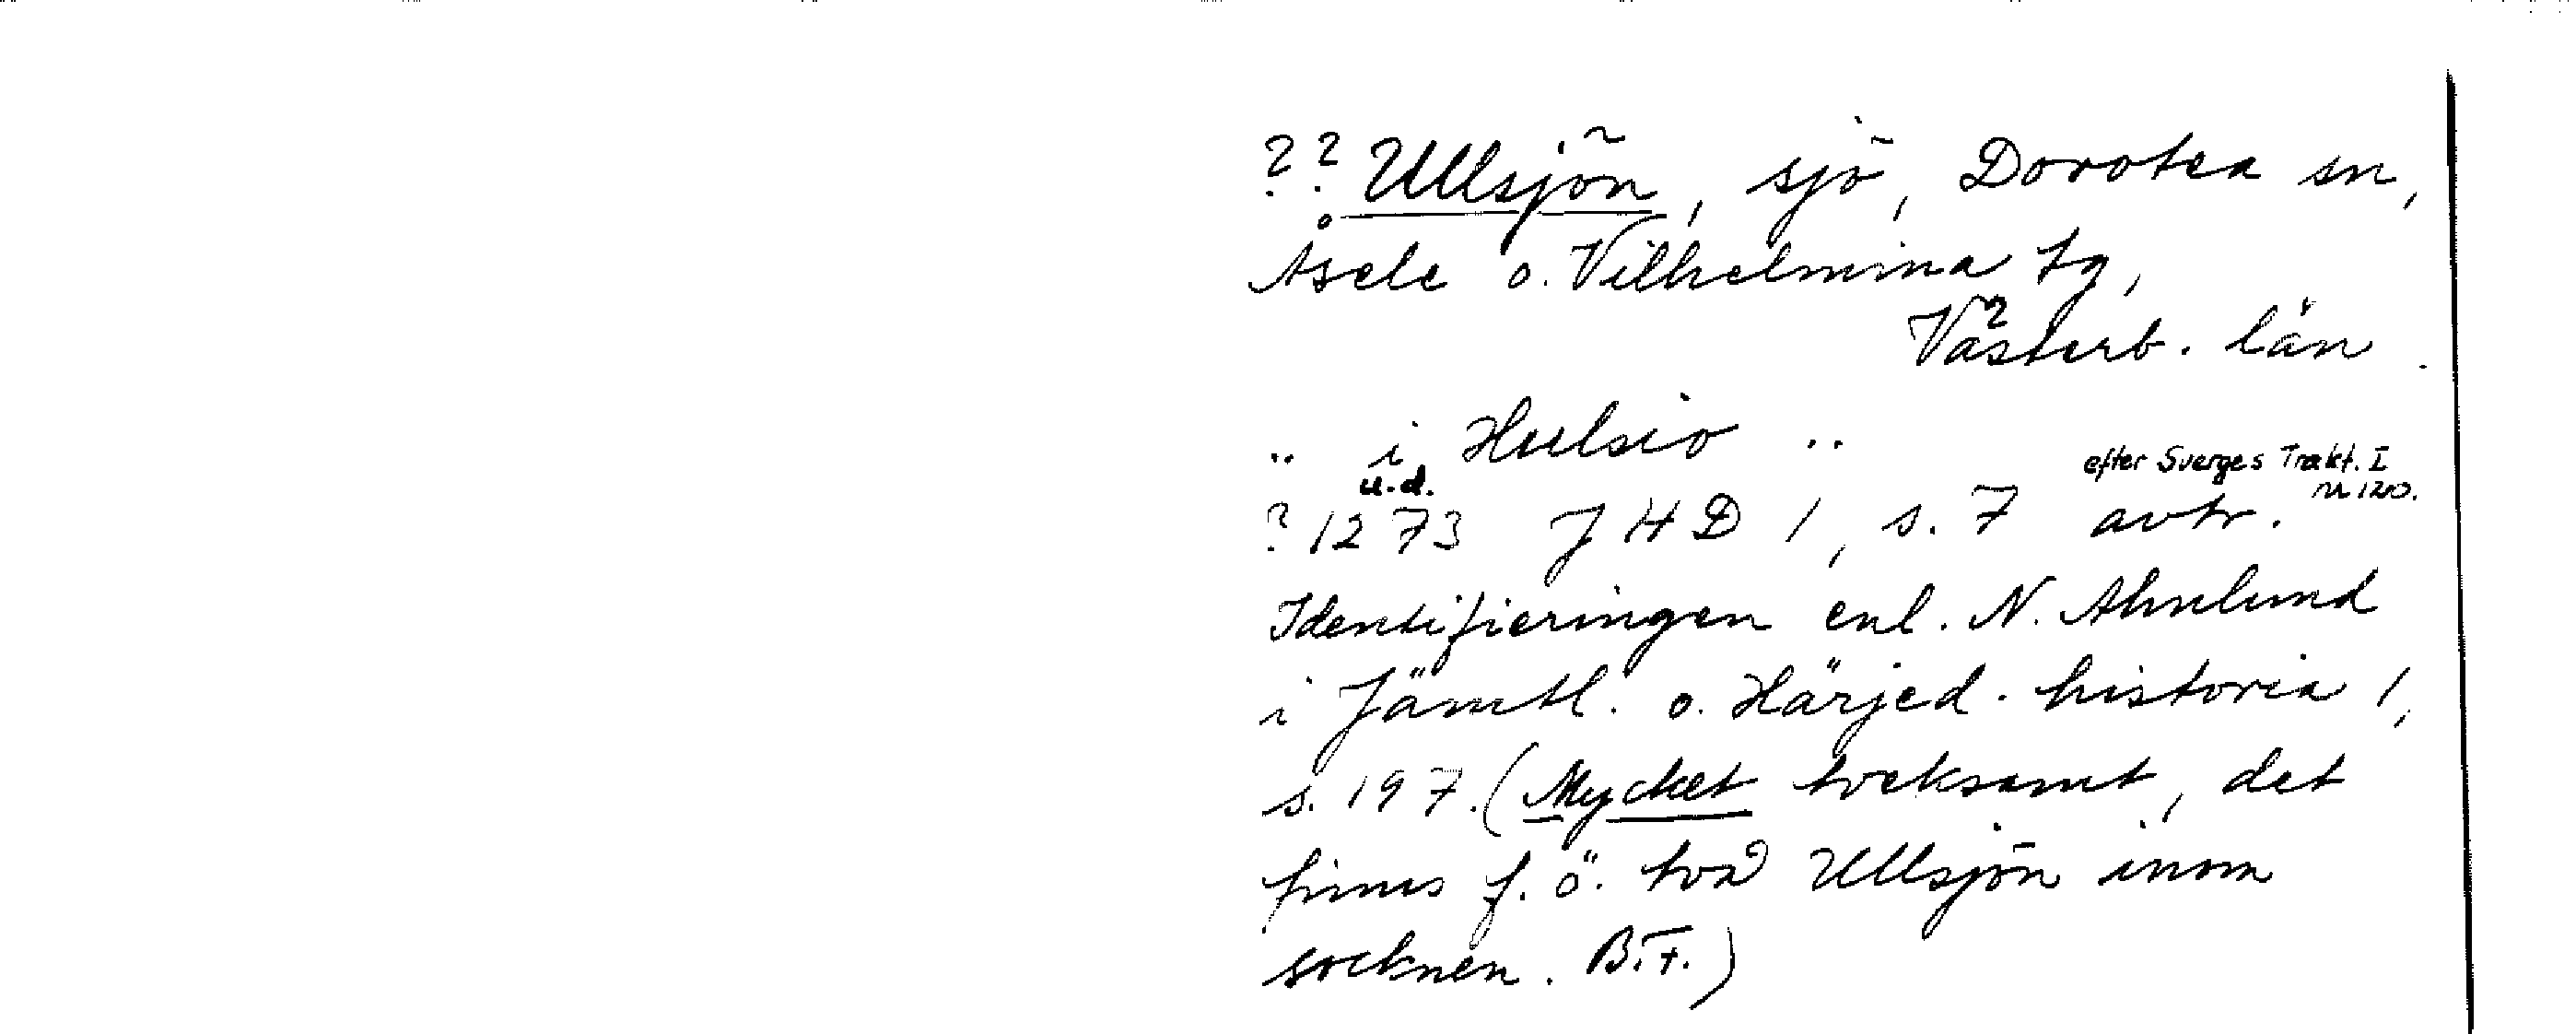 ?? Ullsjön, sjö, Dorotea sn,
Åsele o. Vilhelmina tg,
Västerb. län.
" i Hulsio "
u.d. efter Sverges Trakt. I
n 120.
? 1273 JHD 1, s. 7 avtr.
Identifieringen enl. N. Ahnlund
i Jämtl. o. Härjed. historia 1,
s. 197. (Mycket tveksamt, det
finns f. ö. två Ullsjön inom
socknen. B.F.)